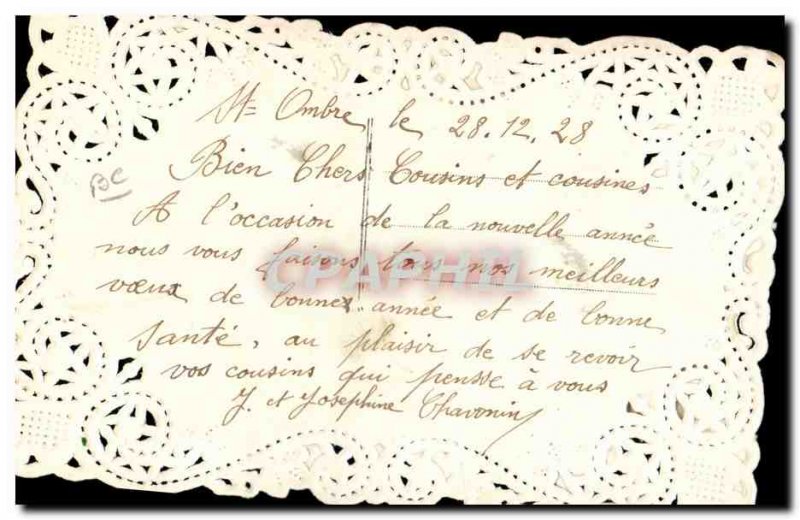 St= Ombre le 28.12.28
BC
Bien Chers Cousins et cousines
A l'occasion de la nouvelle année
nous vous faisons tous nos meilleurs
CPAPHIL
vœux de bonnes année et de bonne
santé, au plaisir de se revoir
vos cousins qui pensse à vous
J. et Josephine Chavonin